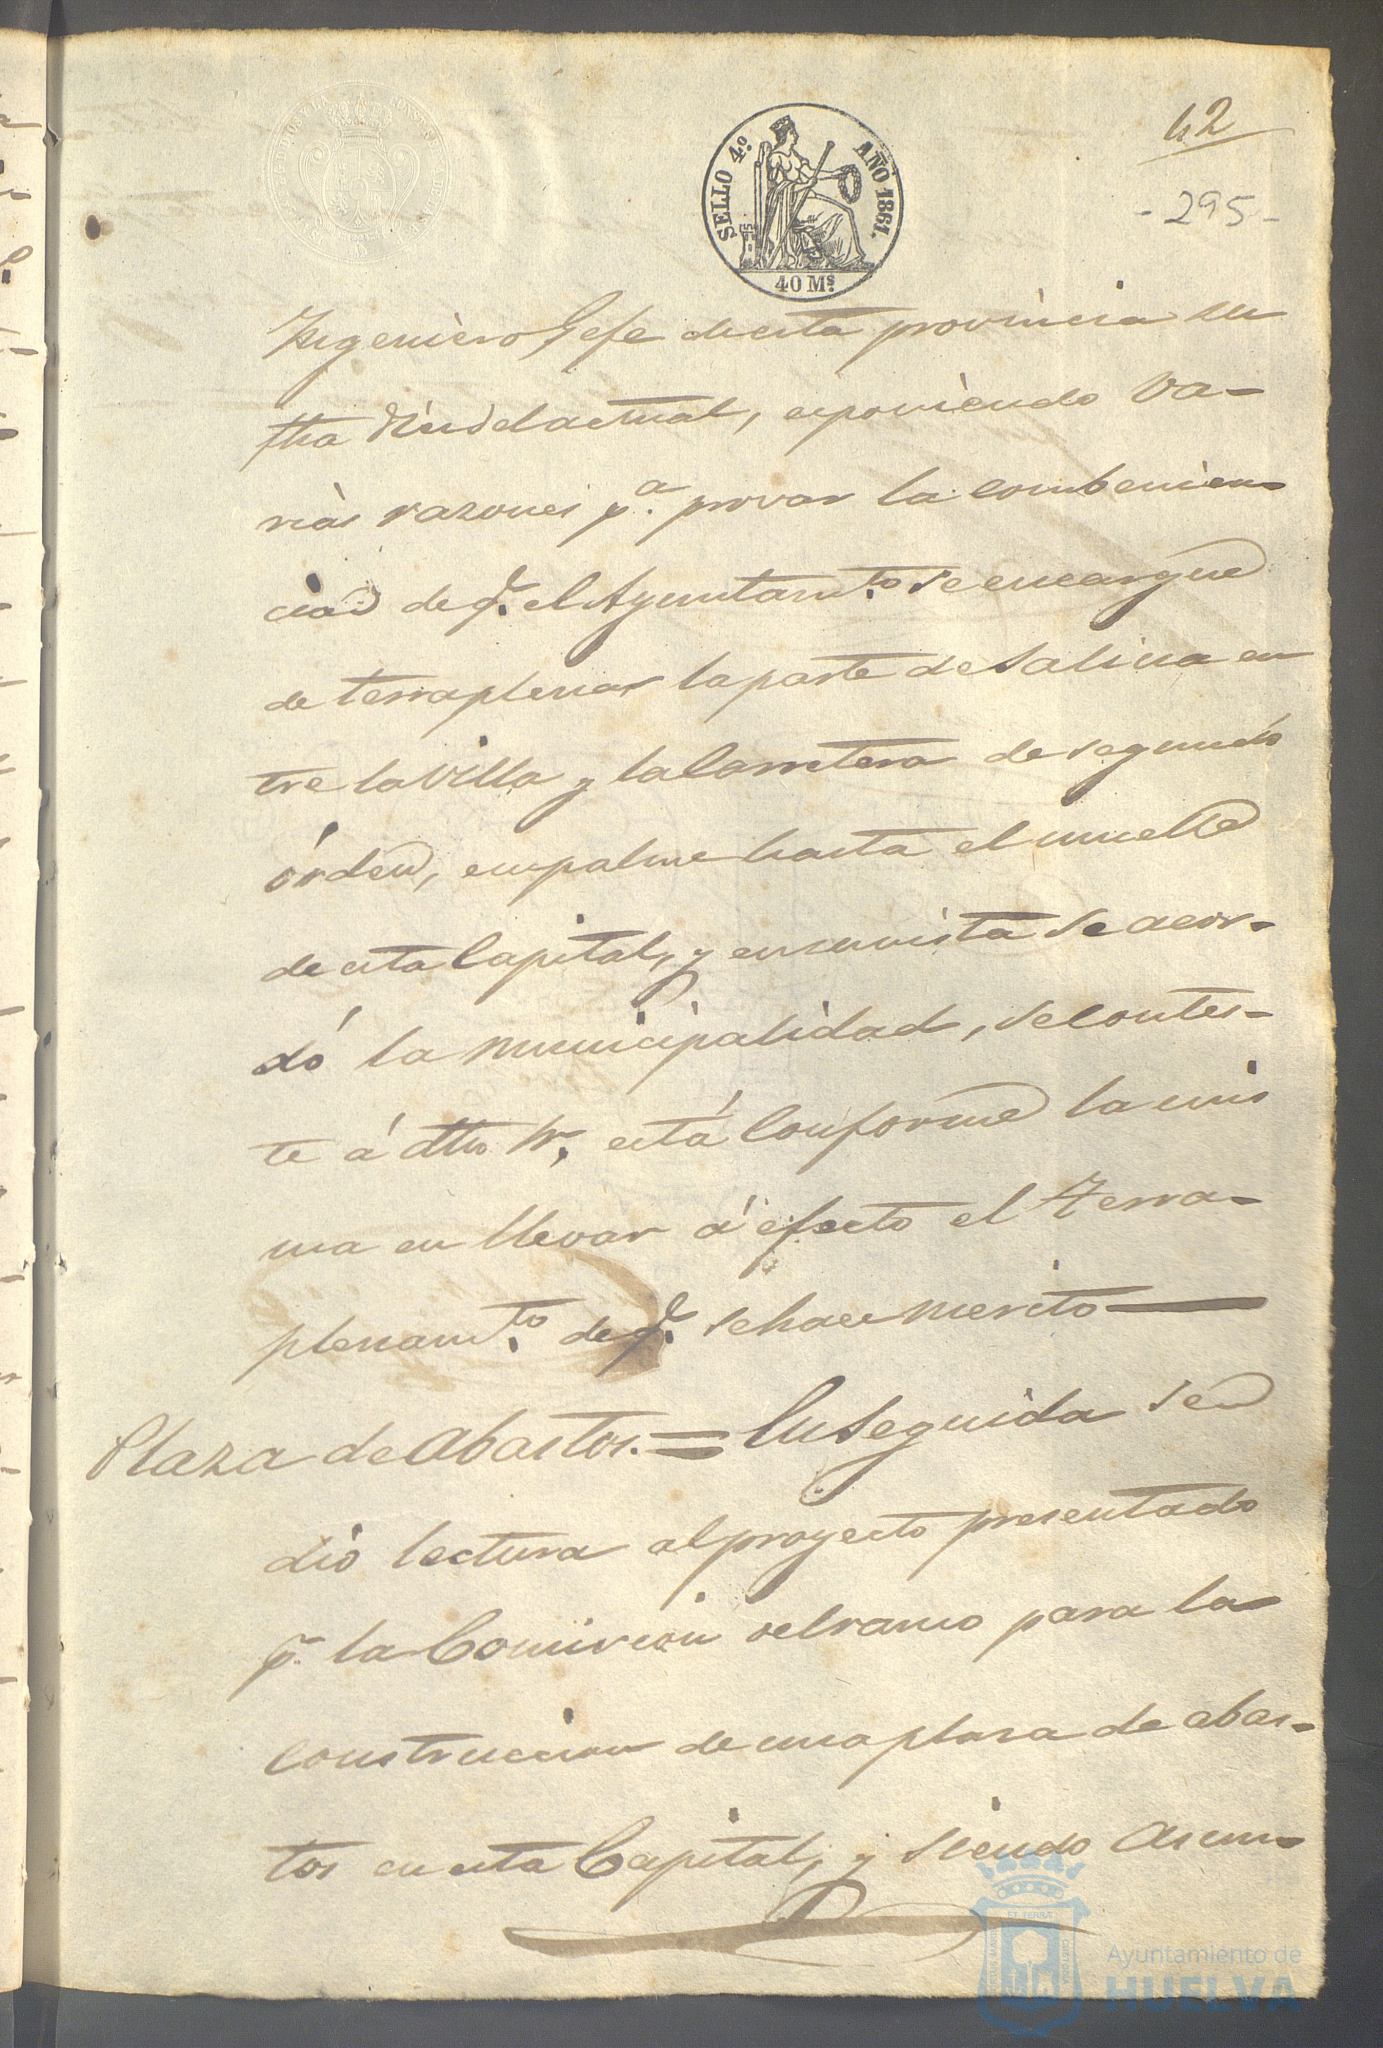 SELLO 4º AÑO 1861.
40 Mˢ.
42
- 295 -
Ingeniero Gefe de esta provincia su
fha del actual, esponiendo va-
rias razones pª. provar la combenien-
cia de q.e el Ayuntamto. se encargue
de terraplenar la parte de Salina en
tre la Villa y la Carretera de segundo
órden, empalme hasta el muelle
de esta Capital, y en su vista se acor-
dó la municipalidad, se contes-
te á dho Sr. está Conforme la mis
ma en llevar á efecto el terra-
plenamto. de q.e se hace merito
Plaza de Abastos. = En Seguida se
dió lectura al proyecto presentado
pr. la Comision del ramo para la
construccion de una plaza de abas-
tos en esta Capital, y siendo asun-
Ayuntamiento de
HUELVA